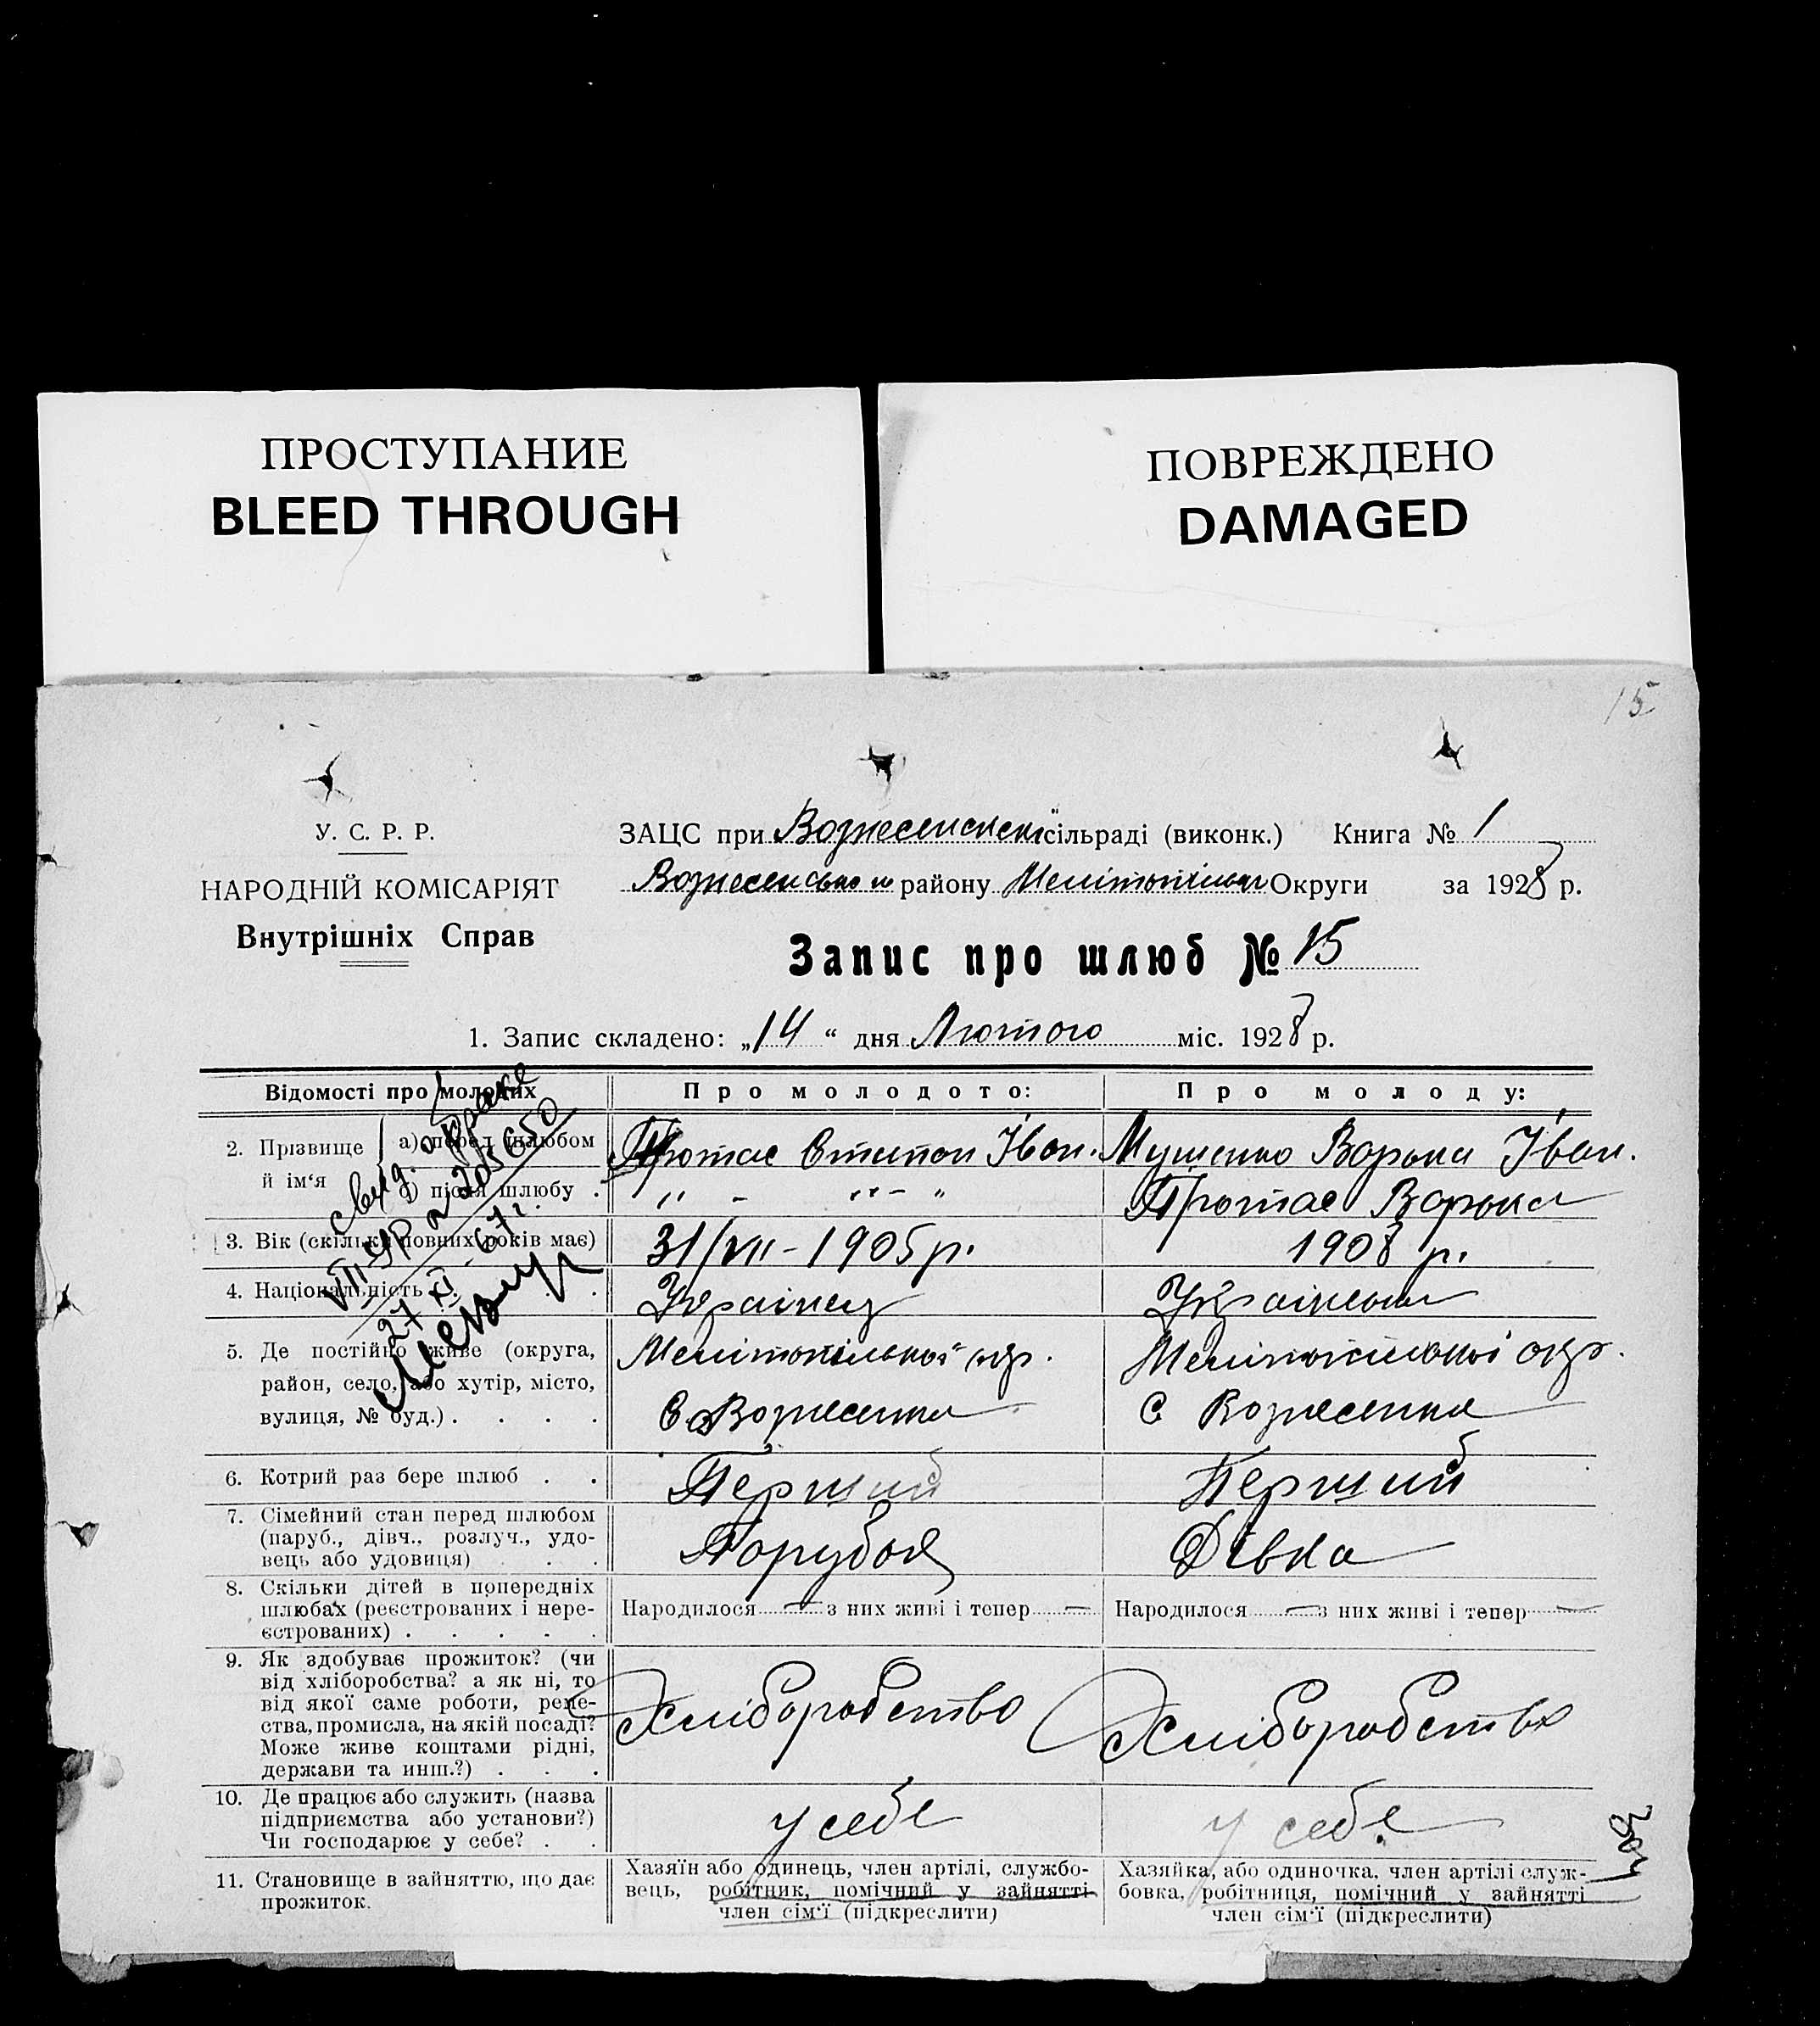 ПРОСТУПАНИЕ
BLEED THROUGH
ПОВРЕЖДЕНО
DAMAGED
15
У. С. Р. Р.
НАРОДНІЙ КОМІСАРІЯТ
Внутрішніх Справ
ЗАЦС при Вознесенскій сільраді (виконк.) Книга № 1
Вознесенського району Мелітопільськ Округи за 1928 р.
Запис про шлюб № 15
1. Запис складено: „14“ дня Лютого міс. 1928 р.
Відомості про молодих
Про молодого:
Про молоду:
2. Прізвище й ім‘я
а) перед шлюбом
Протас Степан Іван.
Мушенко Варька Іван.
б) після шлюбу .
„ - „ - „
Протас Варька
3. Вік (скільки повних років має)
31/VII - 1905 р.
1908 р.
4. Національність . .
Українец
Українка
5. Де постійно живе (округа,
район, село, або хутір, місто,
вулиця, № буд.) . . . .
Мелітопільської окр.
С. Вознесенка
Мелітопільської окр.
С Вознесенка
6. Котрий раз бере шлюб . .
Перший
Перший
7. Сімейний стан перед шлюбом
(паруб., дівч., розлуч., удо-
вець або удовиця) . .
Парубок
Дівка
8. Скільки дітей в попередніх
шлюбах (реєстрованих і нере-
єстрованих) . . . . .
Народилося — з них живі і тепер —
Народилося — з них живі і тепер —
9. Як здобуває прожиток? (чи
від хліборобства? а як ні, то
від якої саме роботи, реме-
ства, промисла, на якій посаді?
Може живе коштами рідні,
держави та инш.?) . . .
Хліборобство
Хліборобство
10. Де працює або служить (назва
підприємства або установи?)
Чи господарює у себе? . .
у себе
у себе
11. Становище в зайняттю, що дає
прожиток.
Хазяїн або одинець, член артілі, службо-
вець, робітник, помічний у зайнятті
член сім‘ї (підкреслити)
Хазяйка, або одиночка, член артілі служ-
бовка, робітниця, помічний у зайнятті
член сім‘ї (підкреслити)
свид. о браке
VIII-ЯР № 205650
27 XI 67 г.